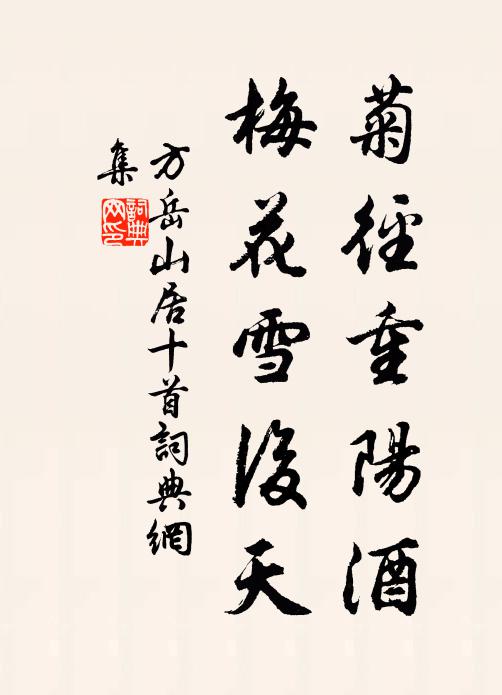 菊徑重陽酒
梅花雪後天
方岳山居十首詞典網
集
詞典
网印